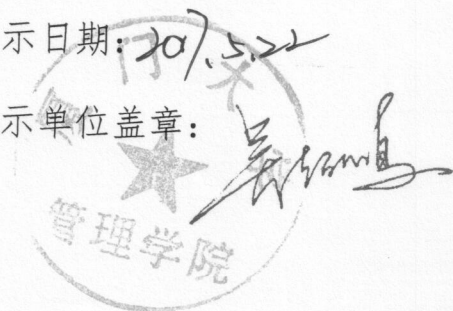 示日期：2017.5.22
示单位盖章：
厦门大
管理学院